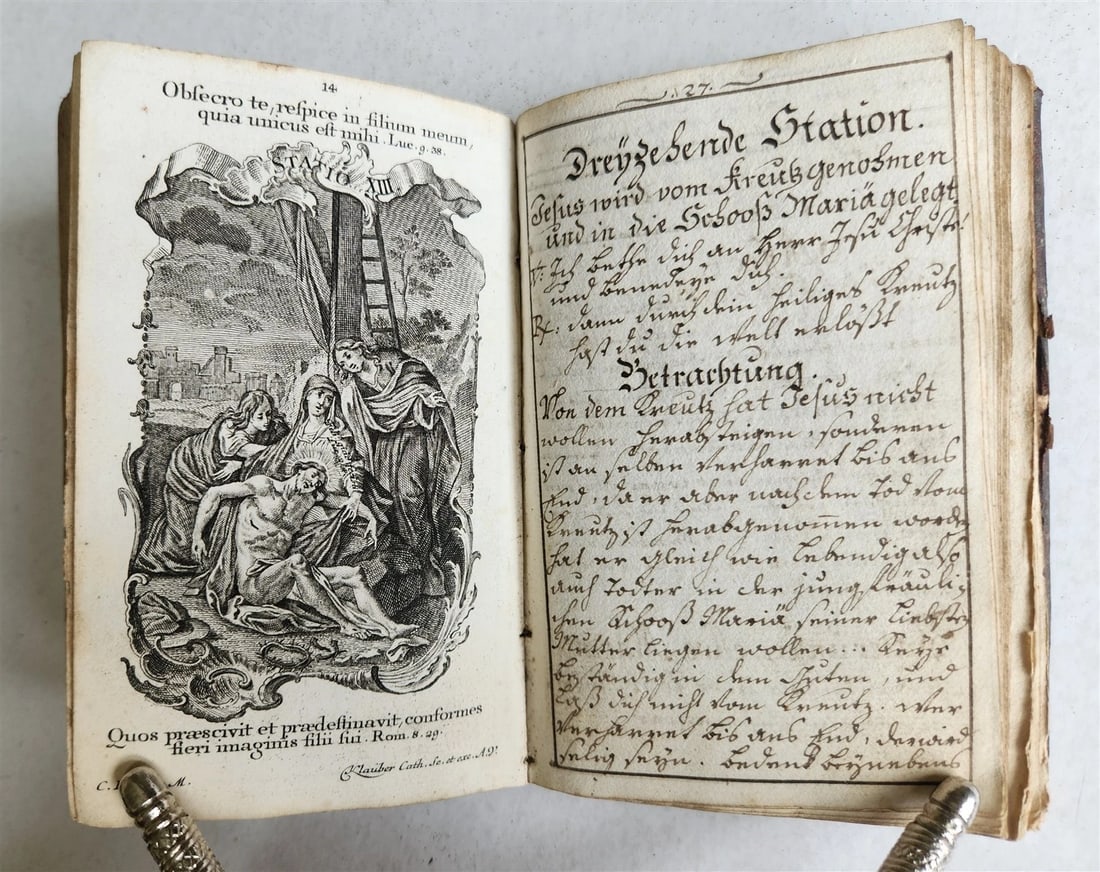 14.
Obſecro te, reſpice in filium meum,
quia unicus eſt mihi. Luc. 9. 38.
STATIO XIII.
Quos præscivit et prædeſtinavit, conformes
fieri imaginis filii ſui. Rom. 8. 29.
C. M.
Klauber Cath. Sc. et exc. A.V.
27.
Dreÿzehende Station.
Jesus wird vom Kreutz genohmen
und in die Schooß Mariä gelegt.
V: Ich bethe dich an Herr Jesu Christe!
und benedeÿe dich.
R: dann durch dein heiliges Kreutz
hast du die welt erlößt
Betrachtung.
Von dem Kreutz hat Jesus nicht
wollen herabsteigen, sonderen
ist an selben verharret bis ans
End, da er aber nach dem Tod vom
Kreutz ist herabgenom̄en worden
hat er gleich wie lebendig also
auch Todter in der jungfräuli-
chen Schooß Mariä seiner liebsten
Mutter liegen wollen. Seÿe
beständig in dem Guten, und
laß dich nicht vom Kreutz. wer
verharret bis ans End, der wird
selig seyn. bedenk beÿnebens